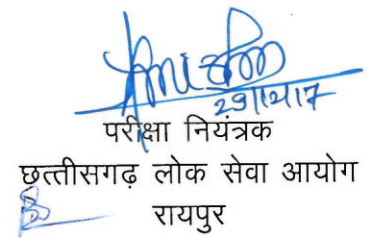 29/12/17
परीक्षा नियंत्रक
छत्तीसगढ़ लोक सेवा आयोग
रायपुर